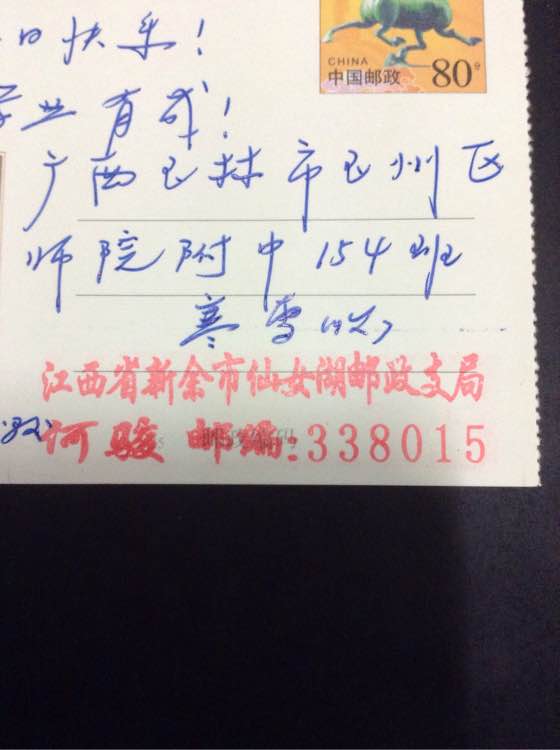 日快乐!
CHINA
中国邮政 80分
学业有成!
广西玉林市玉州区
师院附中 154班
寒雪(收)
江西省新余市仙女湖邮政支局
何骏 邮编:338015